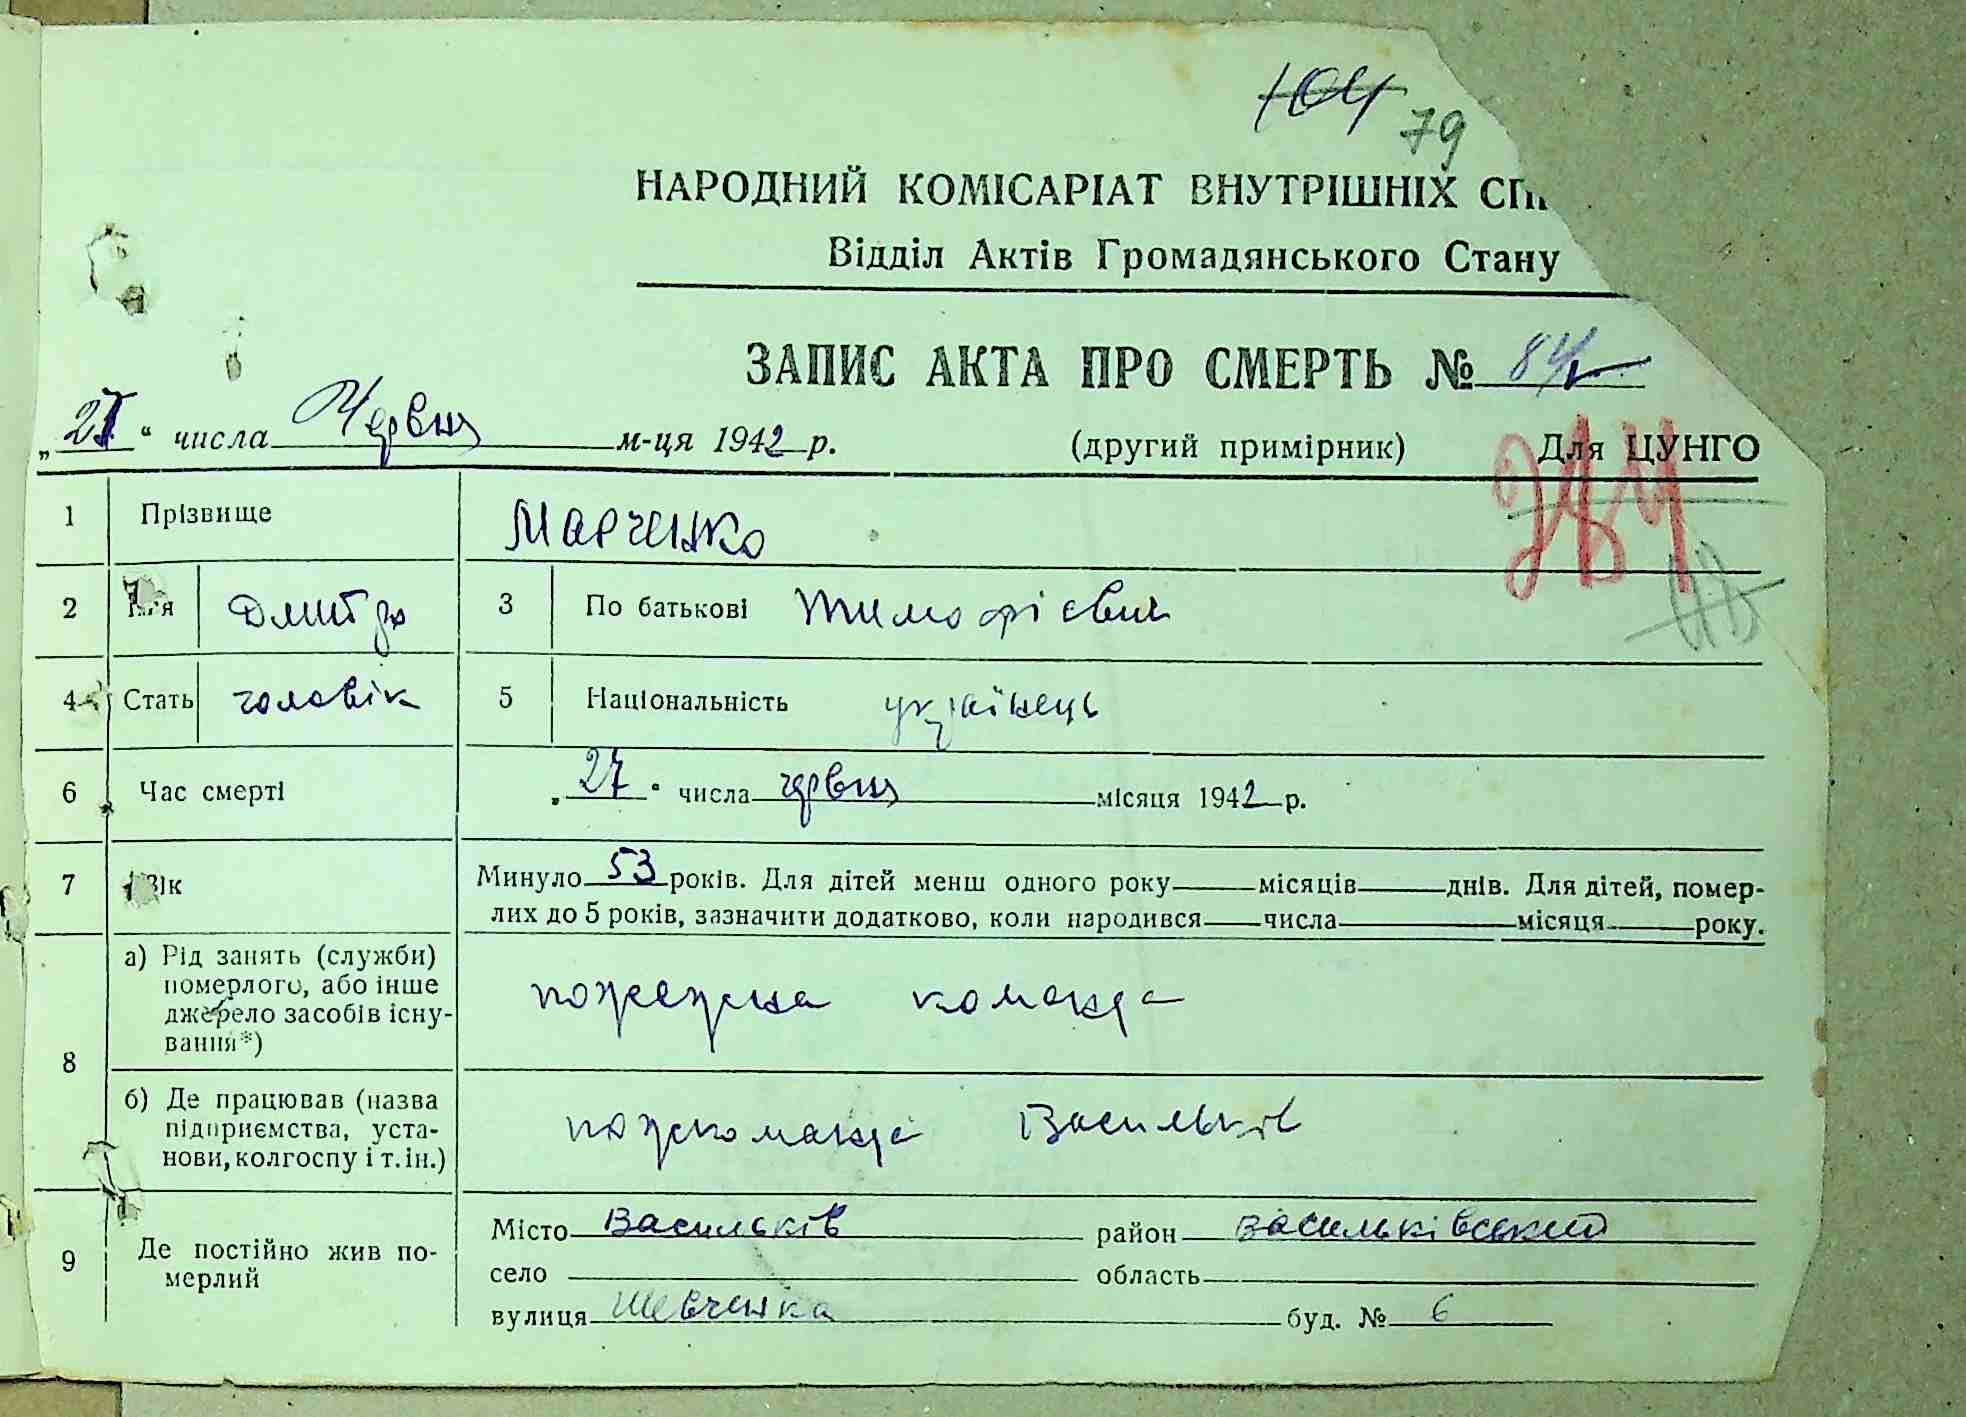 104 79
НАРОДНИЙ КОМІСАРІАТ ВНУТРІШНІХ
Відділ Актів Громадянського Стану
ЗАПИС АКТА ПРО СМЕРТЬ №
„27“ числа Червня м-ця 1942 р. (другий примірник) Для ЦУНГО
1 Прізвище Марченко
2 Ім'я Дмитро 3 По батькові Тимофієвич
4 Стать чоловік 5 Національність українець
6 Час смерті „27“ числа червня місяця 1942 р.
7 Вік Минуло 53 років. Для дітей менш одного року місяців днів. Для дітей, помер-
лих до 5 років, зазначити додатково, коли народився числа місяця року.
8 а) Рід занять (служби)
померлого, або інше
джерело засобів існу-
вання*)
пожежна команда
б) Де працював (назва
підприємства, уста-
нови, колгоспу і т. ін.)
пожкоманда Васильків
9 Де постійно жив по-
мерлий
Місто Васильків район Васильківський
село область
вулиця Шевченка буд. № 6